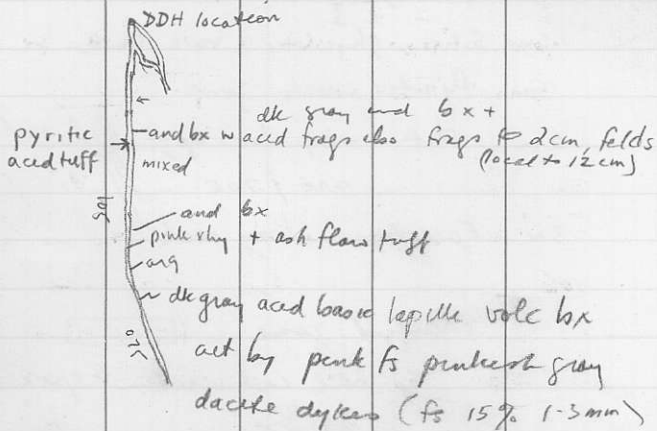 DDH location
dk gray and bx +
pyritic acid tuff
and bx w acid frags also frags to 2cm, felds
(local to 12cm)
mixed
105
and bx
pink rhy + ash flow tuff
arg
dk gray acid basic lapilli volc bx
cut by pink fs pinkish gray
075
dacite dykes (fs 15% 1-3mm)